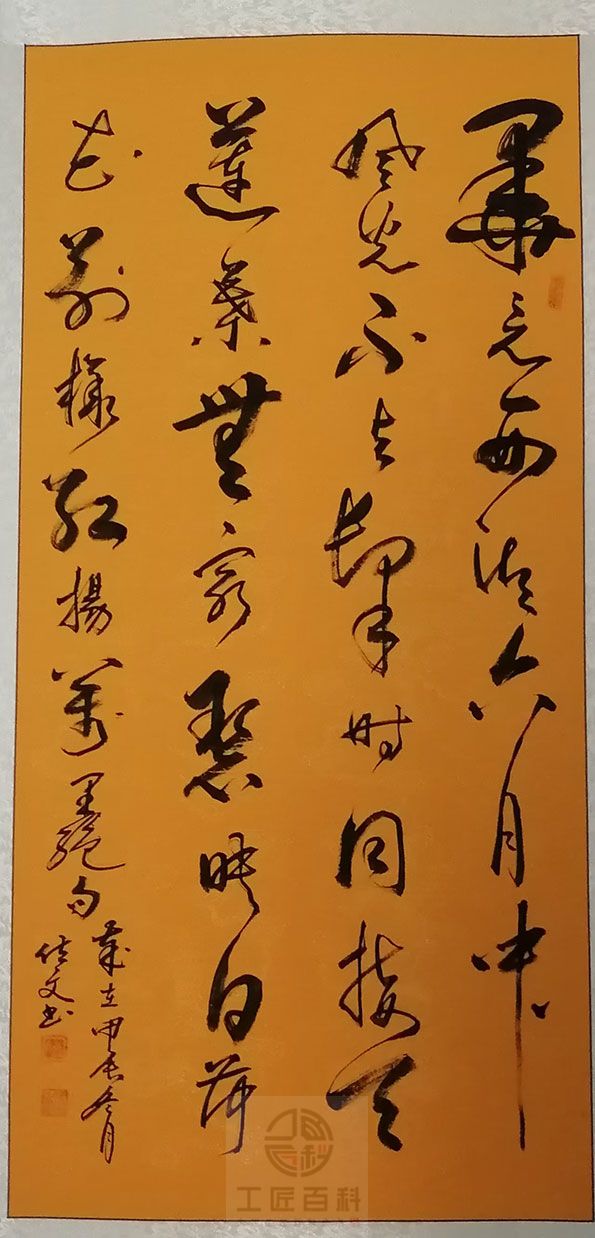 畢竟西湖六月中
風光不与時同接天
蓮葉無窮碧映日荷
花别樣紅揚萬里絕句
歲在甲辰冬月
文书
工匠百科